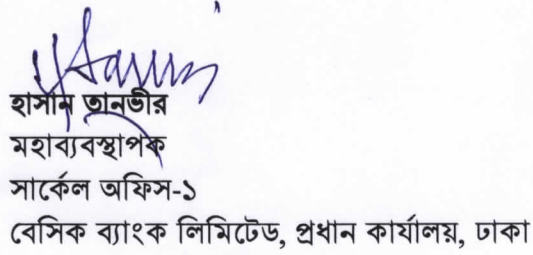 হাসান তানভীর
মহাব্যবস্থাপক
সার্কেল অফিস-১
বেসিক ব্যাংক লিমিটেড, প্রধান কার্যালয়, ঢাকা